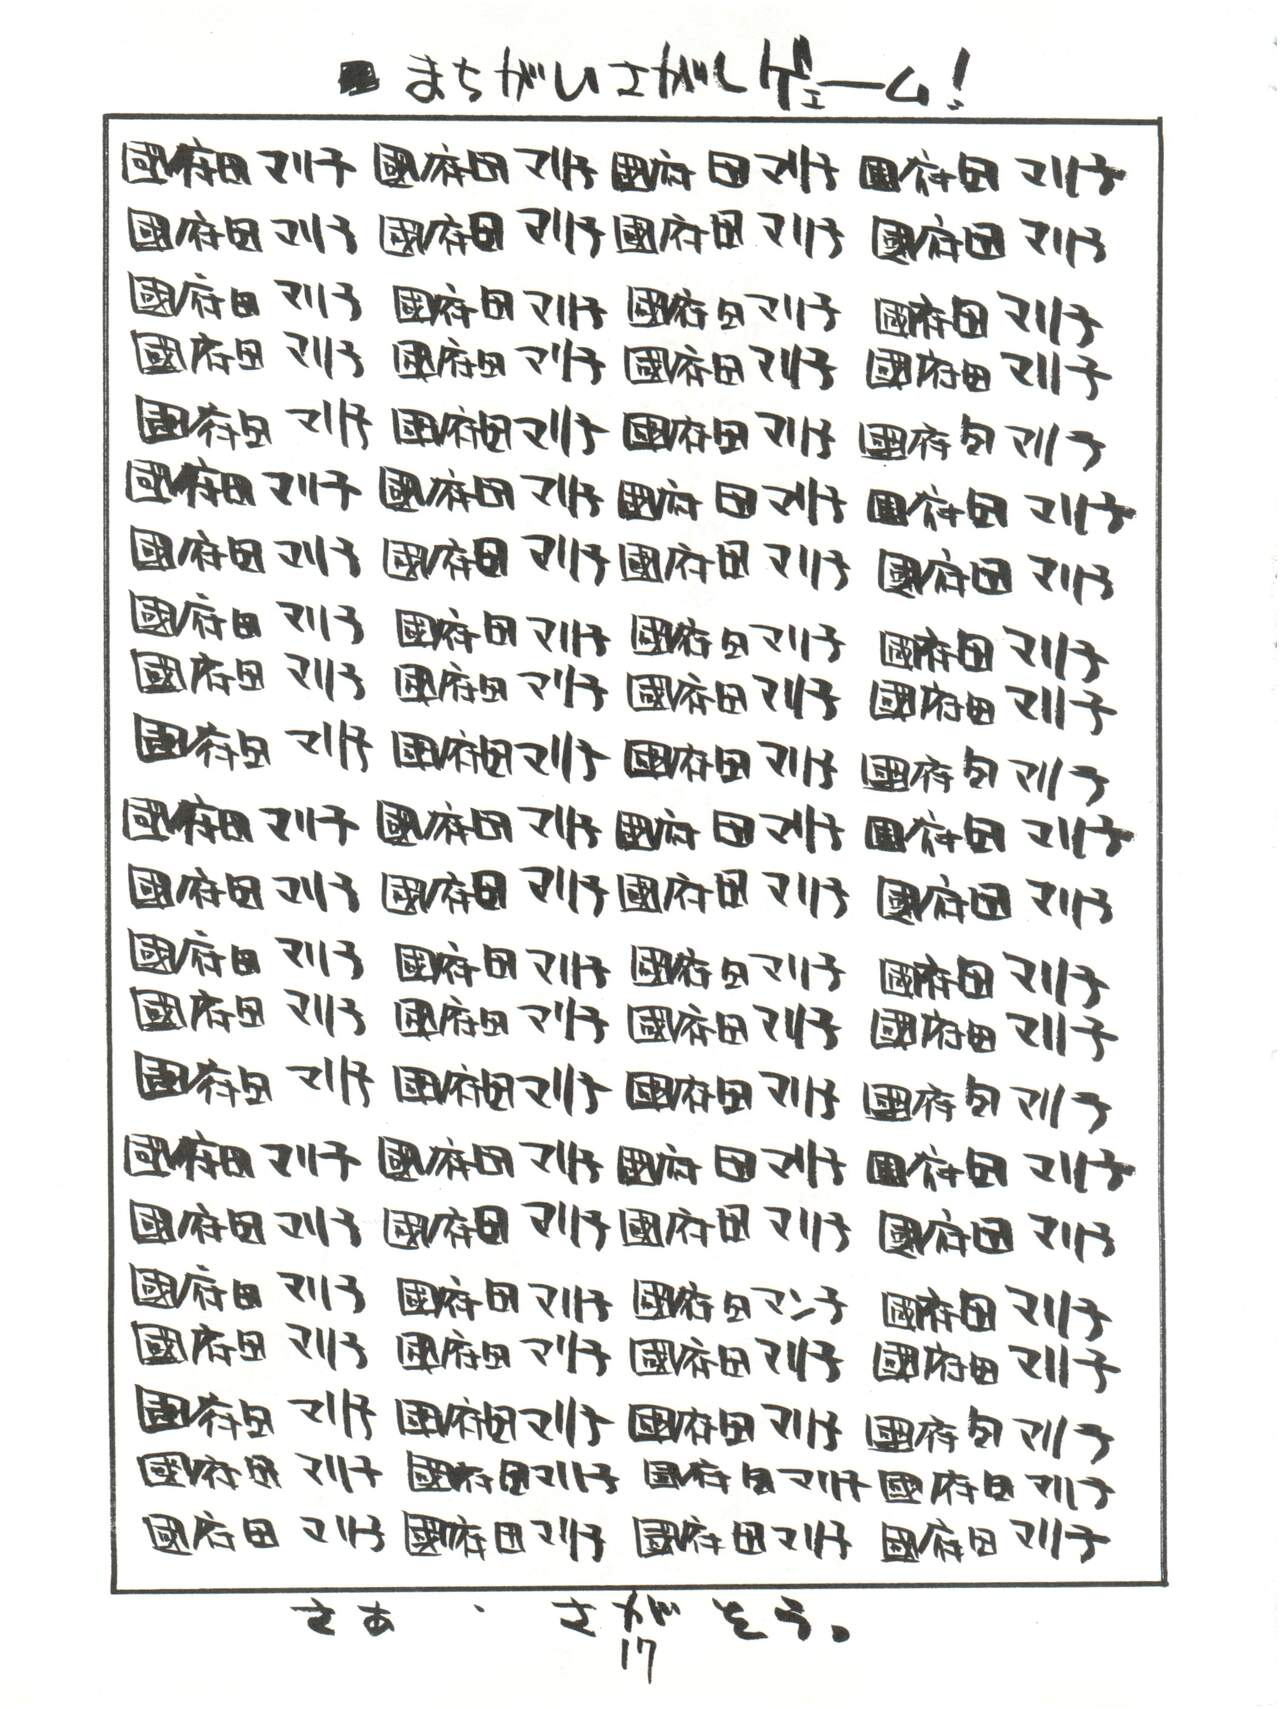 ■まちがいさがしゲェーム!
國府田マリ子 國府田マリ子 國府田マリ子 國府田マリ子
國府田マリ子 國府田マリ子 國府田マリ子 國府田マリ子
國府田マリ子 國府田マリ子 國府田マリ子 國府田マリ子
國府田マリ子 國府田マリ子 國府田マリ子 國府田マリ子
國府田マリ子 國府田マリ子 國府田マリ子 國府田マリ子
國府田マリ子 國府田マリ子 國府田マリ子 國府田マリ子
國府田マリ子 國府田マリ子 國府田マリ子 國府田マリ子
國府田マリ子 國府田マリ子 國府田マリ子 國府田マリ子
國府田マリ子 國府田マリ子 國府田マリ子 國府田マリ子
國府田マリ子 國府田マリ子 國府田マリ子 國府田マリ子
國府田マリ子 國府田マリ子 國府田マリ子 國府田マリ子
國府田マリ子 國府田マリ子 國府田マリ子 國府田マリ子
國府田マリ子 國府田マリ子 國府田マリ子 國府田マリ子
國府田マリ子 國府田マリ子 國府田マリ子 國府田マリ子
國府田マリ子 國府田マリ子 國府田マリ子 國府田マリ子
國府田マリ子 國府田マリ子 國府田マリ子 國府田マリ子
國府田マリ子 國府田マリ子 國府田マリ子 國府田マリ子
國府田マリ子 國府田マリ子 國府田マン子 國府田マリ子
國府田マリ子 國府田マリ子 國府田マリ子 國府田マリ子
國府田マリ子 國府田マリ子 國府田マリ子 國府田マリ子
國府田マリ子 國府田マリ子 國府田マリ子 國府田マリ子
國府田マリ子 國府田マリ子 國府田マリ子 國府田マリ子
さぁ、さがそう。
17